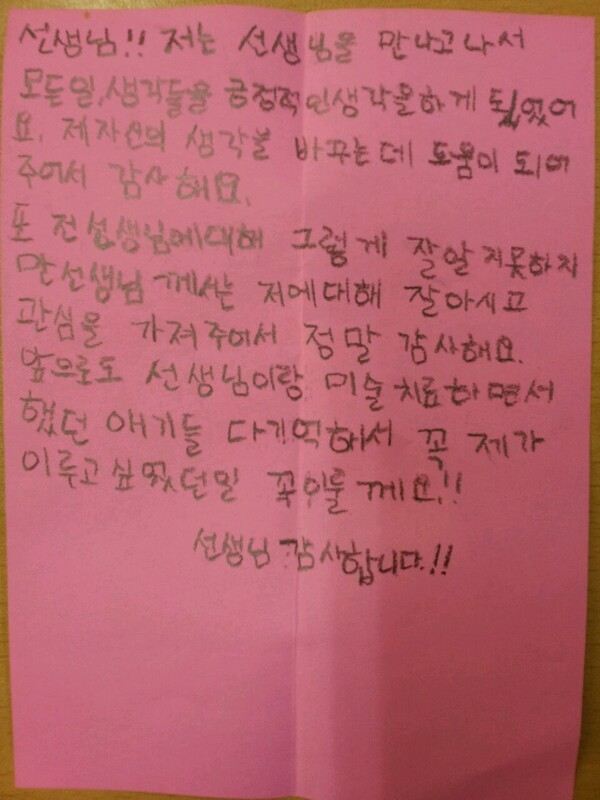 선생님!! 저는 선생님을 만나고나서
모든일,생각들을 긍정적인생각을하게 됬었어
요. 제자신의 생각을 바꾸는데 도움이 되어
주어서 감사해요.
또 전선생님에대해 그렇게 잘알지못하지
만선생님께서는 저에대해 잘아시고
관심을 가져주어서 정말 감사해요.
앞으로도 선생님이랑 미술치료하면서
했던 얘기들 다기억해서 꼭 제가
이루고싶었던일 꼭이룰께요!!
선생님 감사합니다.!!